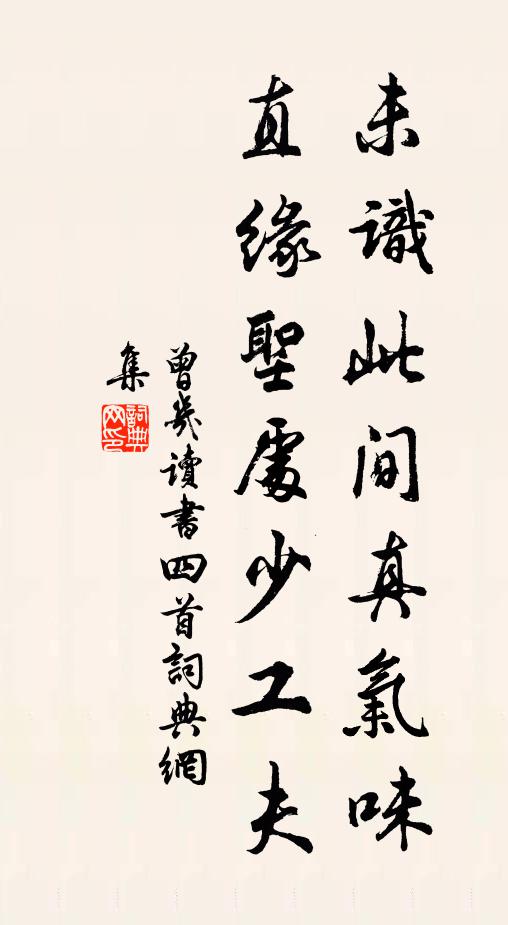 未識此間真氣味
直緣聖處少工夫
曾幾讀書四首詞典網
集
詞典
网印